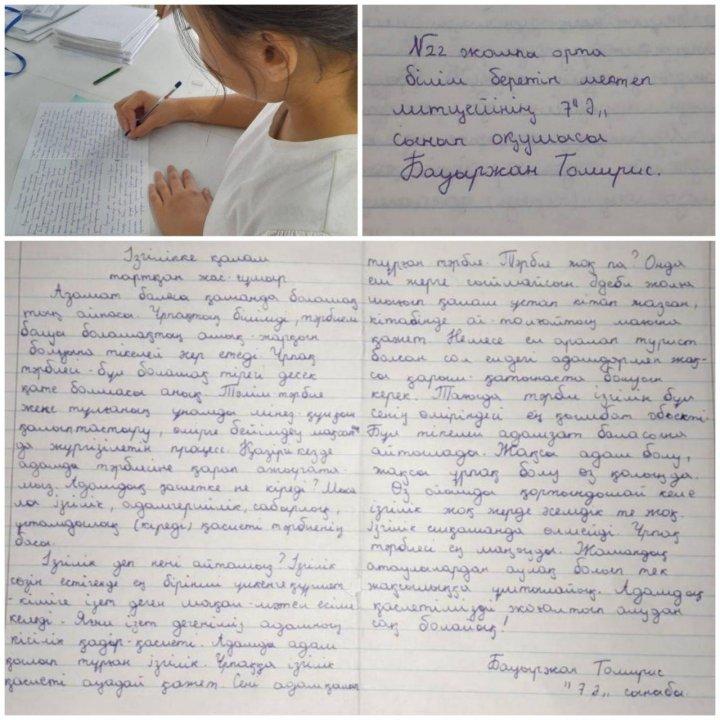 №22 жалпы орта
білім беретін мектеп
литцейінің 7 "Ә"
сынып оқушысы
Бауыржан Томирис.
Ізгілікке қалам
тартқан жас ғұмыр
Азамат баласы қашанда болашақ
тың айнасы. Ұрпақтың білімді, тәрбиелі
болуы болашақтың ашық-жарқын
болуына тікелей әсер етеді. Ұрпақ
тәрбиесі - бұл болашақ тірегі десек
қате болмасы анық. Тәлім тәрбие
жеке тұлғаның ұнамды мінез-құлқын
қалыптастыру, өмірге бейімдеу мақсатын
да жүргізілетін процесс. Қазіргі кезде
адамды тәрбиесіне қарап ажырата
мыз. Адамдық қасиетке не кіреді? Мыса
лы ізгілік, адамгершілік, сабырлық,
ұстамдылық (кіреді) қасиеті тәрбиенің
басы.
Ізгілік деп нені айтамыз? Ізгілік
сөзін естігенде ең бірінші үлкенге құрмет
- кішіге ізет деген мақал-мәтел есіме
келеді. Яғни ізет дегеніміз адамның
кісілік қадір-қасиеті. Адамды адам
қылып тұрған ізгілік. Ұрпаққа ізгілік
қасиеті ауадай қажет. Сені адам қылып
тұрған тәрбие. Тәрбие жоқ па? Онда
еш жерге сыймайсың. Әдеби жолға
шығып қалам ұстап кітап жазсаң,
кітабіңде ай-толғайтың мағына
қажет. Немесе ел аралап турист
болсаң сол елдегі адамдармен жақ-
сы қарым-қатынаста болуың
керек. Тағыда тәрбие ізгілік бұл
сенің өміріңдегі ең қымбат объекті.
Бұл тікелей адамзат баласына
айтылады. Жақсы адам болу,
жақсы ұрпақ болу өз қолыңда.
Өз ойымды қортындылай келе
ізгілік жоқ жерде әсемдік те жоқ.
Ізгілік ешқашанда өлмейді. Ұрпақ
тәрбиесі ең маңызды. Жамандық
атаулылардан аулақ болып тек
жақсылыққа ұмтылайық. Адамдық
қасиетімізді жоғалтып алудан
сақ болайық!
Бауыржан Томирис
"7 Ә" сыныбы.